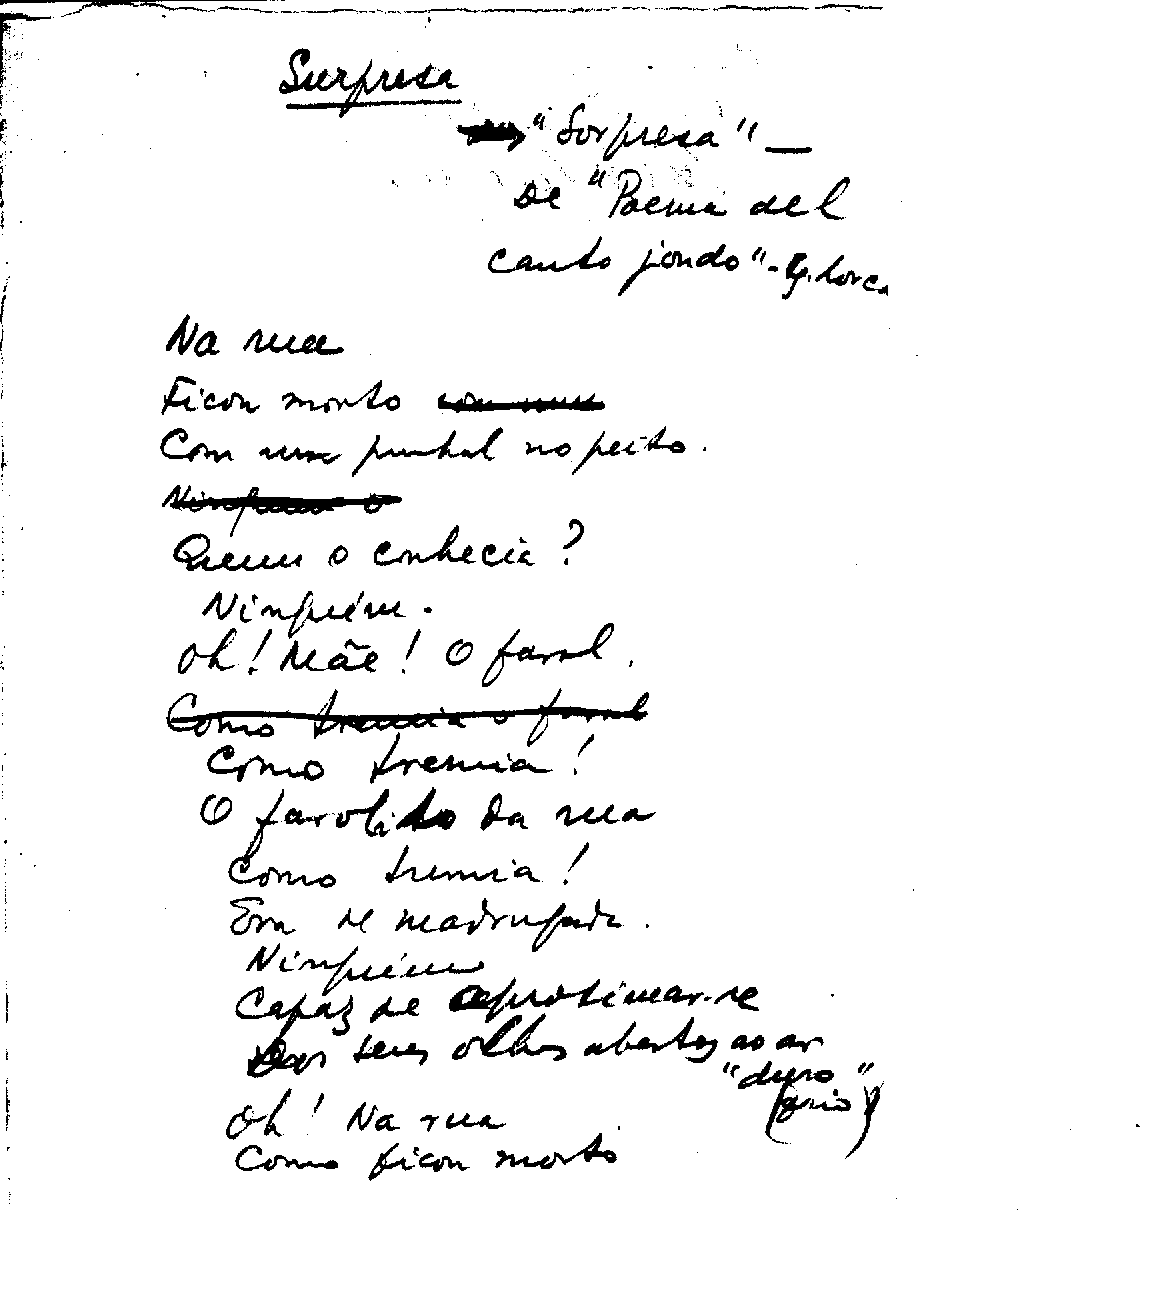 Surpresa
"Sorpresa" —
De "Poema del
canto jondo" - G. Lorca
Na rua
Ficou morto com um
Com um punhal no peito.
Ninguém o
Quem o conhecia?
Ninguém.
Oh! Mãe! O farol.
Como tremia o farol
Como tremia!
O farolito da rua
Como tremia!
Era de madrugada.
Ninguém
Capaz de aproximar-se
Dos seus olhos abertos ao ar
"duro"
Oh! Na rua
Como ficou morto